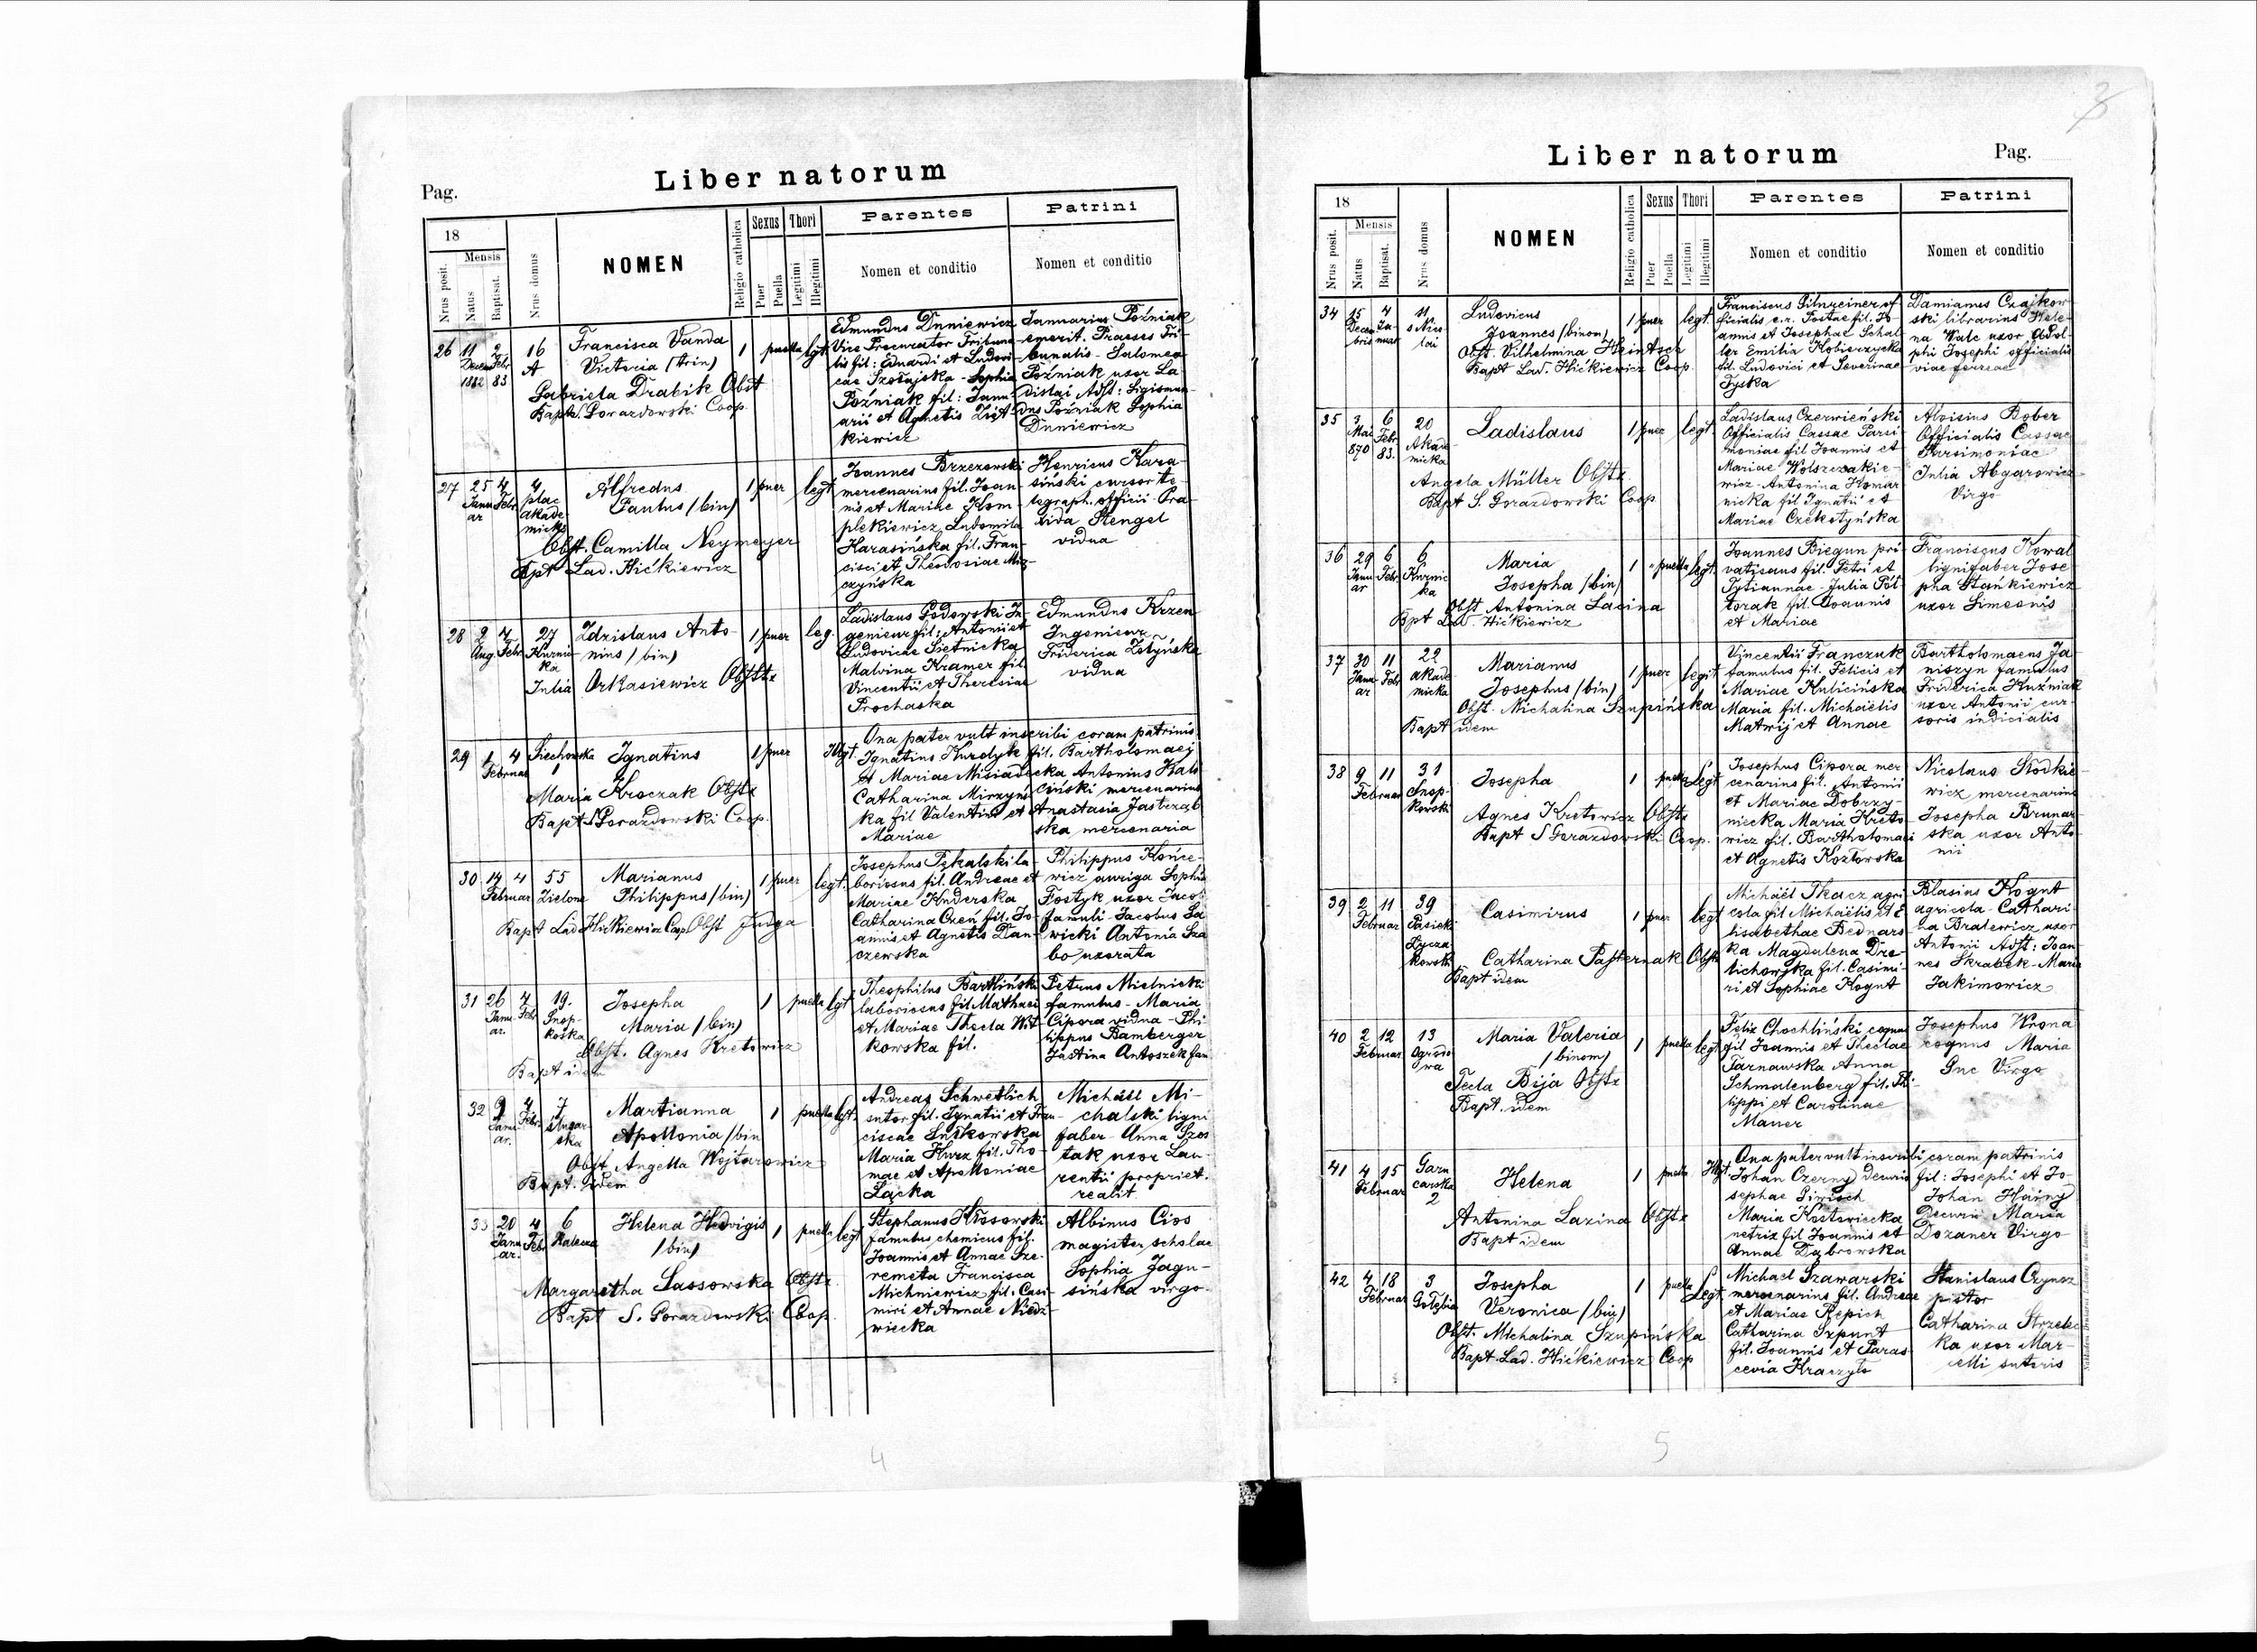 Pag.
Liber natorum
18
Nrus posit.
Mensis
Natus
Baptisat.
Nrus domus
NOMEN
Religio catholica
Sexus
Puer
Puella
Thori
Legitimi
Illegitimi
Parentes
Nomen et conditio
Patrini
Nomen et conditio
26 11 2 16
Decem Febr A
1882 83
Francisca Vanda
Victoria (trin)
Gabriela Drabik Obst
Bapt. Gorazdowski Coop.
1 puella lgt
Edmundus Duniewicz
Vice Procurator Tribuna-
lis fil: Eduardi et Ludovi-
cae Szołajska - Sophia
Poźniak fil: Janu-
arii et Agnetis
kiewicz
Januarius Poźniak
emerit. Praeses Tri-
bunalis - Salomea
Poźniak uxor La
dislai Adst: Sigismun-
dus Poźniak Sophia
Duniewicz
27 25 4 4
Janu Febr plac
ar akade
micki
Alfredus
Paulus (bin)
Obst. Camilla Neymeyer
Bpt Lad. Hićkiewicz
1 puer legt
Joannes Brzezowski
mercenarius fil. Joan-
nis et Mariae Kom
plekiewicz Ludomila
Harasińska fil. Fran-
cisci et Theodosiae
czyńska
Henricus Hara-
siński cursor te-
legraph. officii - Pra-
xida Stengel
vidua
28 2 4 27
Aug. Febr Kurnic
ka
Zdzislaus Anto-
nius (bin)
Julia Arkasiewicz Obsttx
1 puer leg.
Ladislaus Godowski In-
genieur fil: Antonii et
Ludovicae Sietnicka
Malvina Kramer fil
Vincentii et Theresiae
Prochaska
Edmundus Krzen
Ingenieur
Friderica Zełyńska
vidua
29 1 4 Siechowska
Februar 1
Ignatius
Maria Kroczak Obstx
Bapt S Gorazdowski Coop.
1 puer Illgt.
Qua pater vult inscribi coram patrinis
Ignatius Kurdyk fil. Bartholomaei
et Mariae Misiadecka
Catharina Mirzyńs
ka fil Valentini et
Mariae
Antonius Kali
ciński mercenarius
Anastasia Jastrząb
ska mercenaria
30 14 4 55
Februar Zielona
Marianus
Philippus (bin)
Bapt Lad Hićkiewicz Coop Obst Juzga
1 puer legt.
Josephus Pękalski la-
boriosus fil. Andreae et
Mariae Kuderska
Catharina Czeń fil. Jo-
annis et Agnetis Dan-
czewska
Philippus Końce-
wicz auriga Sophia
Fostyk uxor Jacob
famuli - Jacobus Sa
wicki Antonia Sza
bo uxorata
31 26 4 19.
Janu Febr Snop-
ar. koska
Josepha
Maria (bin)
Obst. Agnes Kretowicz
Bapt idem
1 puella lgt
Theophilus Bartliński
laboriosus fil Mathaei
et Mariae Thecla Wit-
kowska fil.
Petrus Mielnicki
famulus - Maria
Cipora vidua - Phi-
lippus Bamberger
Justina Antoszek fam
32 9 4 7
Janu Febr
ar. ska
Martianna
Apollonia (bin
Obst Angella Wojtarowicz
Bapt. idem
1 puella lgt.
Andreas Schwetlich
sutor fil. Ignatii et Fran-
ciscae Sutkowska
Maria Kurx fil. Tho-
mae et Apolloniae
Lącka
Michael Mi-
chalski ligni
faber - Anna Szos
tak uxor Lau-
rentii propriet.
realit
33 20 4 6
Janu Febr Kalecza
ar.
Helena Hedvigis
(bin)
Margaretha Sassowska Obstx.
Bapt S. Gorazdowski Coop
1 puella legt
Stephanus Krosowski
famulus chemicus fil.
Joannis et Annae Sze-
remeta Francisca
Michniewicz fil. Casi-
miri et Annae Niedź
wiecka
Albinus Cios
magister scholae
Sophia Jagu-
sińska virgo
4
Liber natorum
Pag.
3
18
Nrus posit.
Mensis
Natus
Baptisat.
Nrus domus
NOMEN
Religio catholica
Sexus
Puer
Puella
Thori
Legitimi
Illegitimi
Parentes
Nomen et conditio
Patrini
Nomen et conditio
34 15 4 11
Decem Ja- s Nico
bris nuar lai
Ludovicus
Joannes (binom)
Obst. Vilhelmina Heintsch
Bapt Lad. Hićkiewicz Coop.
1 puer legt.
Franciscus Gilnreiner of
ficialis c.r. Postae fil. Jo-
annis et Josephae Schal
ler Emilia Kobierzycka
fil. Ludovici et Severinae
Tyska
Damianus Czajkow-
ski librarius Hele-
na Walc uxor Adol-
phi Josephi officialis
viae ferreae
35 3 6 20
Mai Febr Akade-
870 83. micka
Ladislaus
Angela Müller Obstx
Bapt S. Gorazdowski Coop.
1 puer legt.
Ladislaus Czerwieński
Officialis Cassae Parsi
moniae fil Joannis et
Mariae Wolszczakie-
wicz - Antonina Komar
nicka fil Ignatii et
Mariae Czekotyńska
Aloisius Bober
Officialis Cassae
Parsimoniae
Julia Abgarowicz
Virgo
36 29 6 6
Janu Febr. Kurnic
ar ka
Maria
Josepha (bin)
Obst Antonina Lacina
Bpt Lad Hićkiewicz
1 puella legt.
Joannes Biegun pri-
vaticus fil. Petri et
Tytiannae - Julia Pół-
torak fil. Joannis
et Mariae
Franciscus Kowal
lignifaber Jose
pha Stańkiewicz
uxor Simeonis
37 30 11 22
Janu Febr akade
ar micka
Marianus
Josephus (bin)
Obst. Michalina Szupińska
Bapt idem
1 puer legit
Vincentii Franczuk
famulus fil. Felicis et
Mariae Kulicińska
Maria fil. Michaëlis
Matwij et Annae
Bartholomaeus Ja
niszyn famulus
Friderica Kuźniak
uxor Antonii cur-
soris indicialis
38 9 11 31
Februar Snop-
kowski
Josepha
Agnes Kretowicz Obstx
Bapt S Gorazdowski Coop.
1 puella legt
Josephus Cipora mer
cenarius fil. Antonii
et Mariae Dobrzy-
niecka Maria Kreto
wicz fil. Bartholomaei
et Agnetis Kozłowska
Nicolaus Słodkie-
wicz mercenarius
Josepha Brunar
ska uxor Anto
nii
39 2 11 39
Februar Pasieki
Łycza
kowski
Casimirus
Catharina Pasternak Obstx
Bapt idem
1 puer legt
Michaël Tkacz agri
cola fil Michaëlis et E
lisabethae Bednars-
ka Magdalena Dre
lichowska fil. Casimi-
ri et Sophiae Kogut
Blasius Kogut
agricola - Cathari-
na Bratewicz uxor
Antonii Adst: Joan-
nes Skrabek - Maria
Jakimowicz
40 2 12 13
Februar Ogrodo
wa
Maria Valeria
(binom)
Tecla Bija Obstx
Bapt. idem
1 puella legt
Felix Chochliński coquus
fil Joannis et Theclae
Tarnawska Anna
Schmalenberg fil. Phi-
lippi et Carolinae
Mauer
Josephus Wrona
coquus Maria
Guc Virgo
41 4 15 Garn
Februar carska
2
Helena
Antonina Lazina Obstx
Bapt idem
1 puella Illgt.
Qua pater vult inscribi coram patrinis
Johan Czerny decurio fil: Josephi et Jo-
sephae Sirisch
Maria Kostowiecka
netrix fil Joannis et
Annae Dąbrowska
Johan Hájny
Decurio Maria
Dozaner Virgo
42 4 18 3
Februar Gołębia
Josepha
Veronica (bin)
Obst. Michalina Szupińska
Bapt. Lad. Hićkiewicz Coop
1 puella Legt
Michael Szawarski
mercenarius fil. Andreae
et Mariae Repich
Catharina Szpunt
fil. Joannis et Paras
cevia Kraczyło
Stanislaus Czynsz
pistor
Catharina Strzelec
ka uxor Mar-
celli sutoris
5